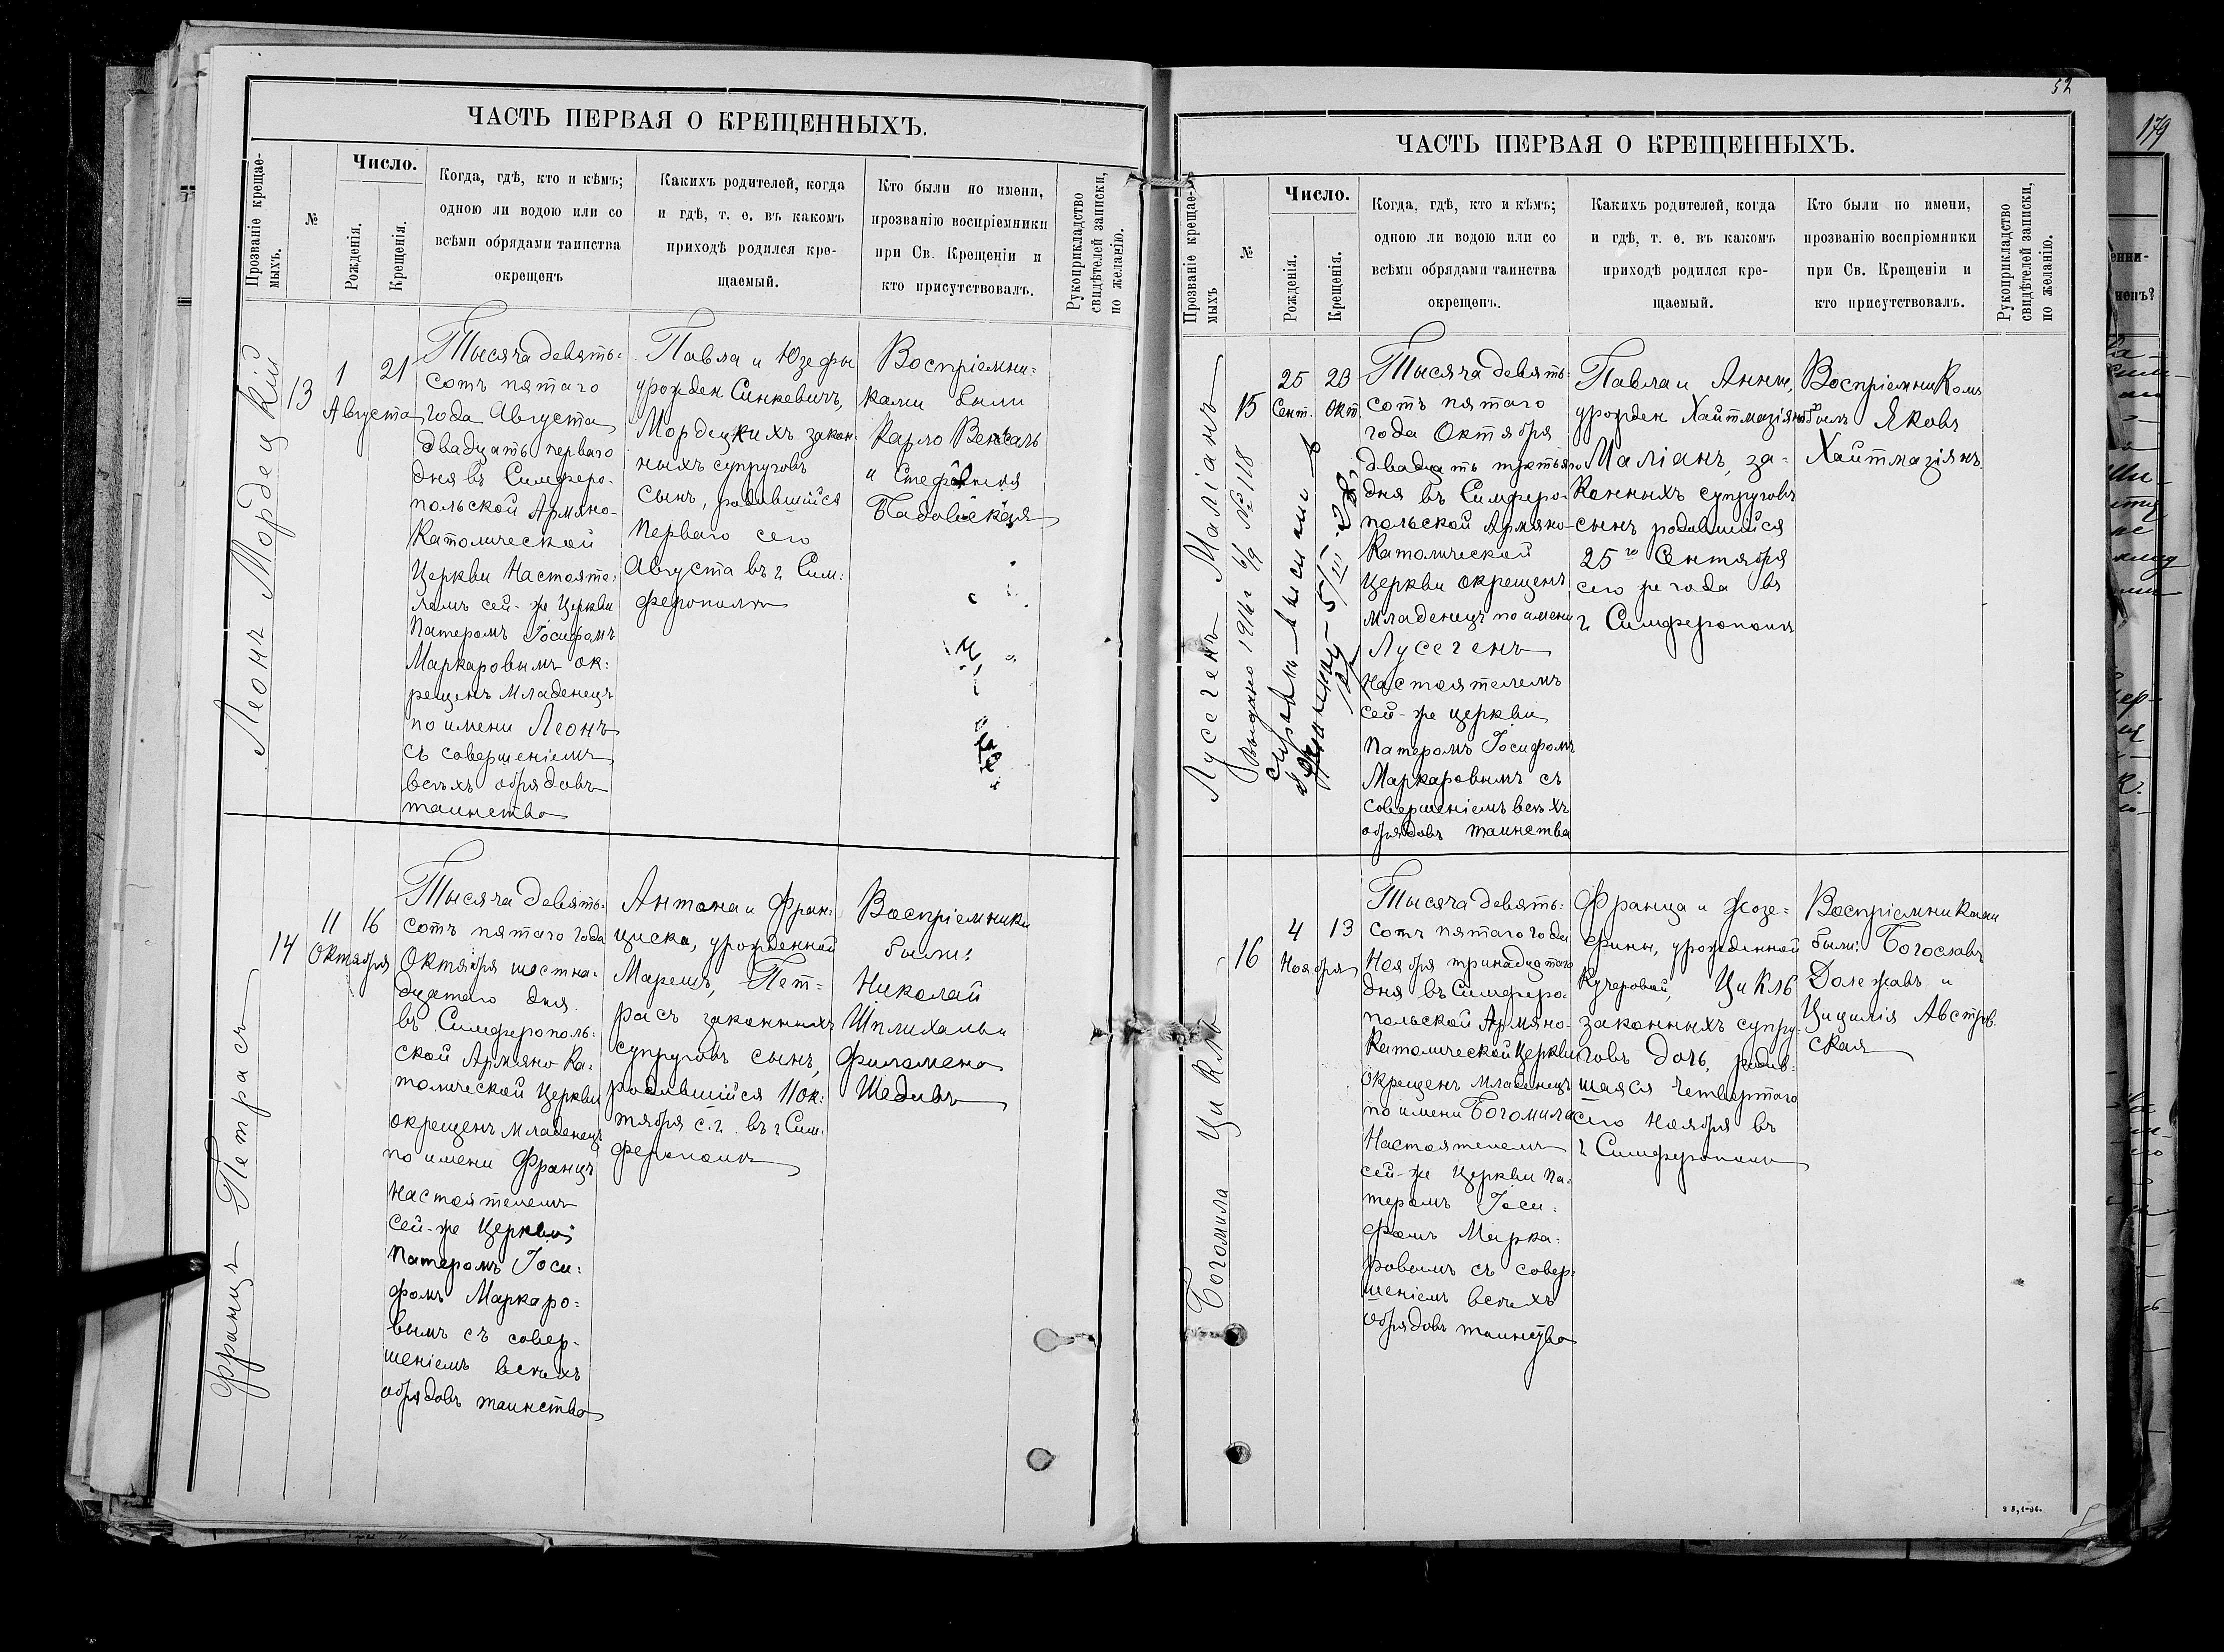 ЧАСТЬ ПЕРВАЯ О КРЕЩЕННЫХЪ.
Прозваніе крещае-
мыхъ.
№
Число.
Рожденія.
Крещенія.
Когда, гдѣ, кто и кѣмъ;
одною ли водою или со
всѣми обрядами таинства
окрещенъ
Какихъ родителей, когда
и гдѣ, т. е. въ какомъ
приходѣ родился кре-
щаемый.
Кто были по имени,
прозванію воспріемники
при Св. Крещеніи и
кто присутствовалъ.
Рукоприкладство
свидѣтелей записки,
по желанію.
Леонъ Мордецкій
13
1
21
Августа
Тысяча девять=
сотъ пятаго
года Августа
двадцать перваго
дня въ Симферо-
польской Армяно-
Католической
Церкви Настояте=
лемъ сей-же Церкви
Патеромъ Іосифомъ
Маркаровымъ ок=
рещенъ Младенецъ
по имени Леонъ
съ совершеніемъ
всѣхъ обрядовъ
таинства
Павла и Юзефы
урожден Синкевичъ,
Мордецкихъ закон-
ныхъ супруговъ
сынъ, родившійся
перваго сего
Августа въ г Сим=
ферополѣ
Воспріемни=
ками были
Карло Венсаль
и Стефанія
14
11
16
Октября
Францъ Петрасъ
Тысяча девять=
сотъ пятаго года
Октября шестна-
дцатаго дня
въ Симферополь=
ской Армяно Ка-
толической Церкви
окрещенъ Младенецъ
по имени Францъ
Настоятелемъ
сей-же Церкви
Патеромъ Іоси=
фомъ Маркаро=
вымъ съ совер-
шеніемъ всѣхъ
обрядовъ таинства
Антона и Фран=
циска, урожденной
Марешъ, Пет=
расъ законныхъ
супруговъ сынъ,
родившійся 11 Ок=
тября с.г. въ г Сим=
ферополѣ
Воспріемники
были:
Николай
Шплихаль и
Филомена
Шедивъ
52
179
ЧАСТЬ ПЕРВАЯ О КРЕЩЕННЫХЪ.
Прозваніе крещае-
мыхъ
№
Число.
Рожденія.
Крещенія.
Когда, гдѣ, кто и кѣмъ;
одною ли водою или со
всѣми обрядами таинства
окрещенъ.
Какихъ родителей, когда
и гдѣ, т. е. въ какомъ
приходѣ родился кре-
щаемый.
Кто были по имени,
прозванію воспріемники
при Св. Крещеніи и
кто присутствовалъ.
Рукоприкладство
свидѣтелей записки,
по желанію.
Лусегенъ Маліанъ
Выдано 1914 г 6/9 № 118
15
25
23
Сент.
Окт.
Тысяча девять=
сотъ пятаго
года Октября
двадцать третьяго
дня въ Симферо-
польской Армяно-
Католической
Церкви окрещенъ
Младенецъ по имени
Лусегенъ
Настоятелемъ
сей-же церкви
Патеромъ Іосифомъ
Маркаровымъ съ
совершеніемъ всѣхъ
обрядовъ таинства
Павла и Анны,
урожден Хайтмазіянъ
Маліанъ, за-
конныхъ супруговъ
сынъ родившійся
25го Сентября
сего же года въ
г Симферополѣ
Воспріемникомъ
былъ Яковъ
Хайтмазіянъ
Богомила Цикль
16
4
13
Ноября
Тысяча девять=
сотъ пятаго года
Ноября тринадцатаго
дня въ Симферо-
польской Армяно-
Католической Церкви
окрещенъ младенецъ
по имени Богомила
Настоятелемъ
сей-же Церкви Па-
теромъ Іоси=
фомъ Марка=
ровымъ съ совер=
шеніемъ всѣхъ
обрядовъ таинства
Франца и Жозе=
фины, урожденной
Кучеровой, Цикль
законныхъ супру-
говъ дочь, родив=
шаяся четвертаго
сего Ноября въ
г Симферополѣ
Воспріемниками
были: Богославъ
Долежавъ и
Цицилія Австров-
ская